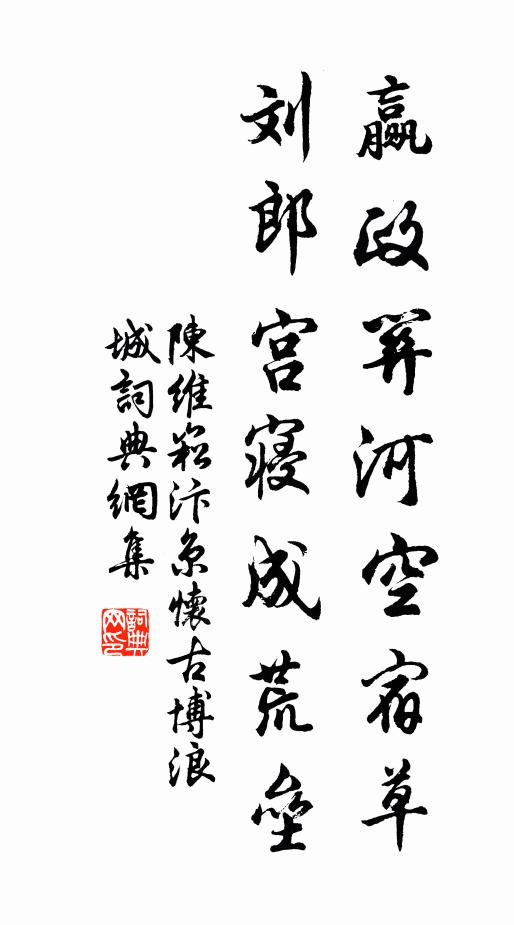 嬴政關河空宿草
刘郎宮寝成荒壘
陳維崧汴京懷古博浪
城詞典網集
詞典網印